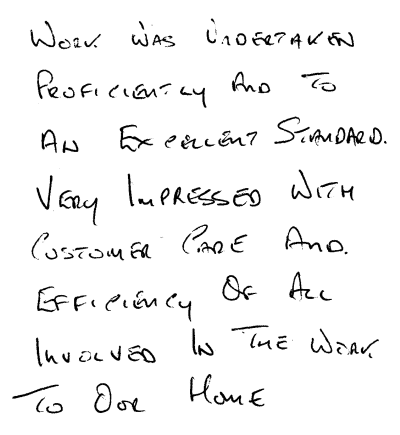 Work Was Undertaken
Proficiently And To
An Excellent Standard.
Very Impressed With
Customer Care And.
Efficiency Of All
Involved In The Work
To Our Home